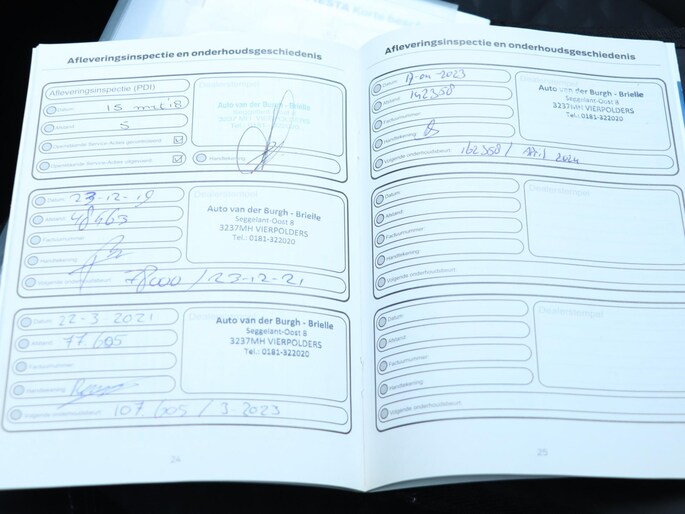 Afleveringsinspectie en onderhoudsgeschiedenis
Afleveringsinspectie (PDI)
Datum
15
Afstand
5
Handtekening
Auto van der Burgh - Brielle
3237MH VIERPOLDERS
Datum 23-12-19
Afstand 48463
Factuurnummer
Handtekening
Volgende onderhoudsbeurt 78000 / 23-12-21
Auto van der Burgh - Brielle
Seggelant-Oost 8
3237MH VIERPOLDERS
Tel.: 0181-322020
Datum 22-3-2021
Afstand 77.605
Factuurnummer
Handtekening
Volgende onderhoudsbeurt 107.605 / 3-2023
Auto van der Burgh - Brielle
Seggelant-Oost 8
3237MH VIERPOLDERS
Tel.: 0181-322020
24
Afleveringsinspectie en onderhoudsgeschiedenis
Datum 17-04-2023
Afstand 142358
Factuurnummer
Handtekening
Volgende onderhoudsbeurt 162358 / 2024
Auto van der Burgh - Brielle
Seggelant-Oost 8
3237MH VIERPOLDERS
Tel.: 0181-322020
Datum
Afstand
Factuurnummer
Handtekening
Volgende onderhoudsbeurt
Dealerstempel
Datum
Afstand
Factuurnummer
Handtekening
Volgende onderhoudsbeurt
Dealerstempel
25